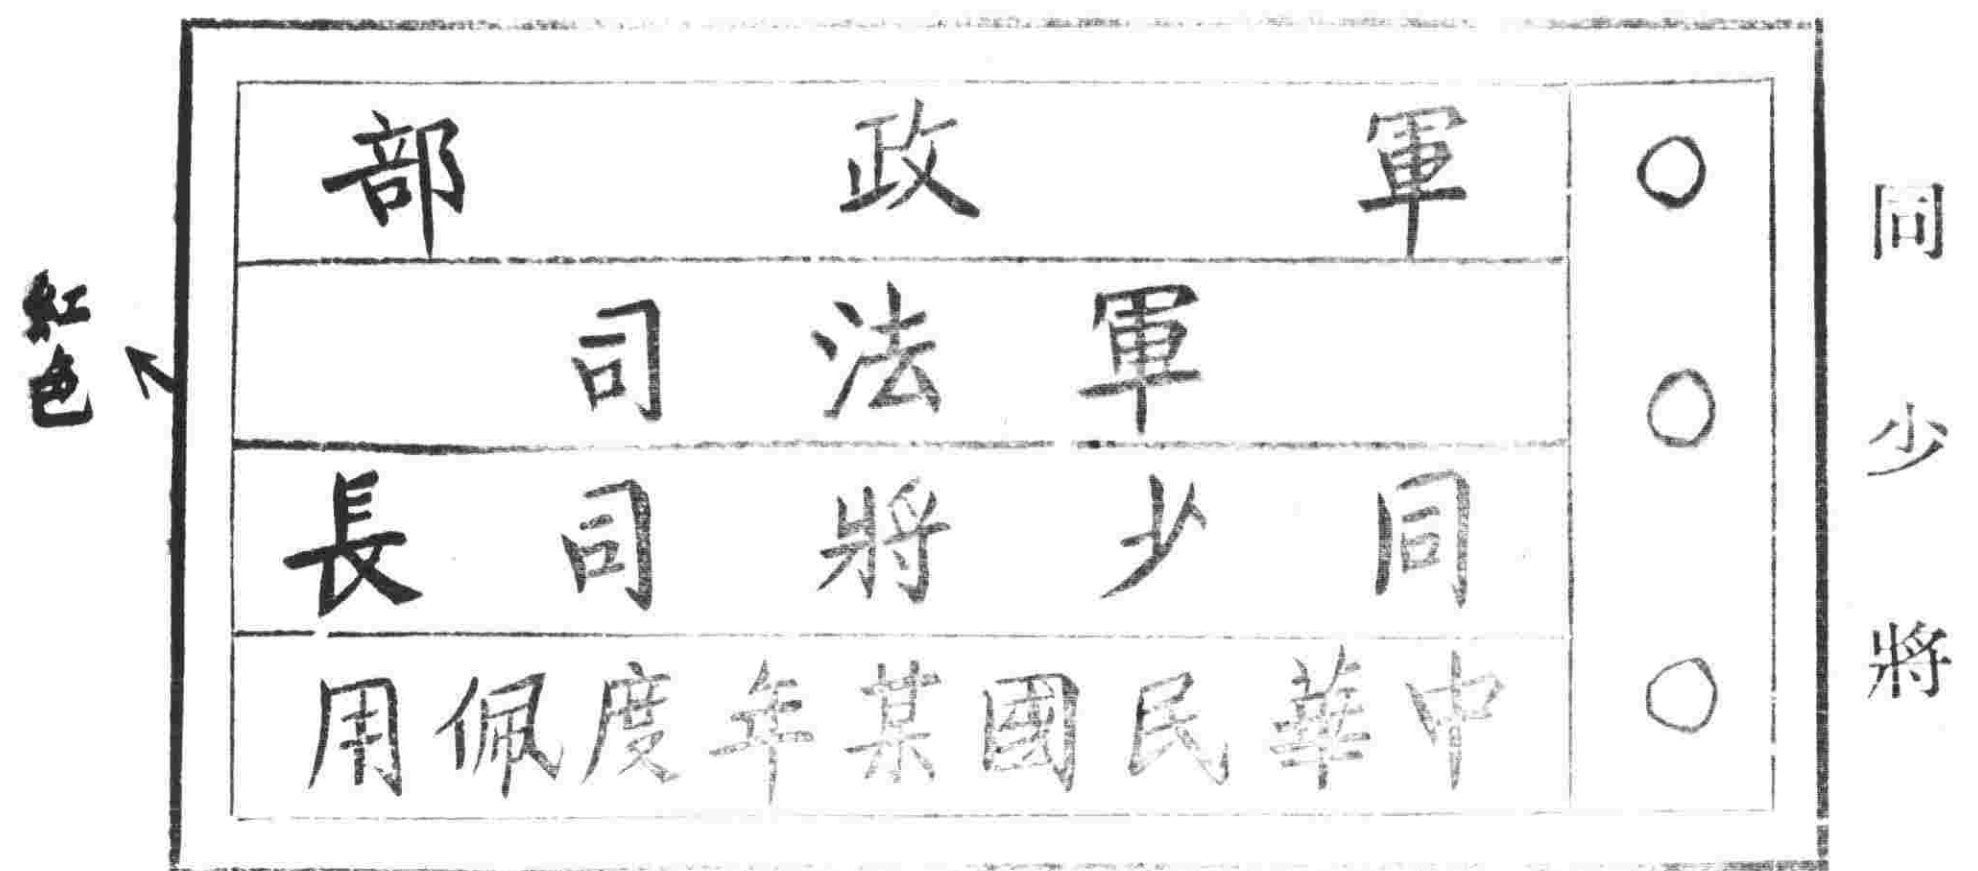 同少將
軍政部
軍法司
同少將司長
中華民國某年度佩用
紅色